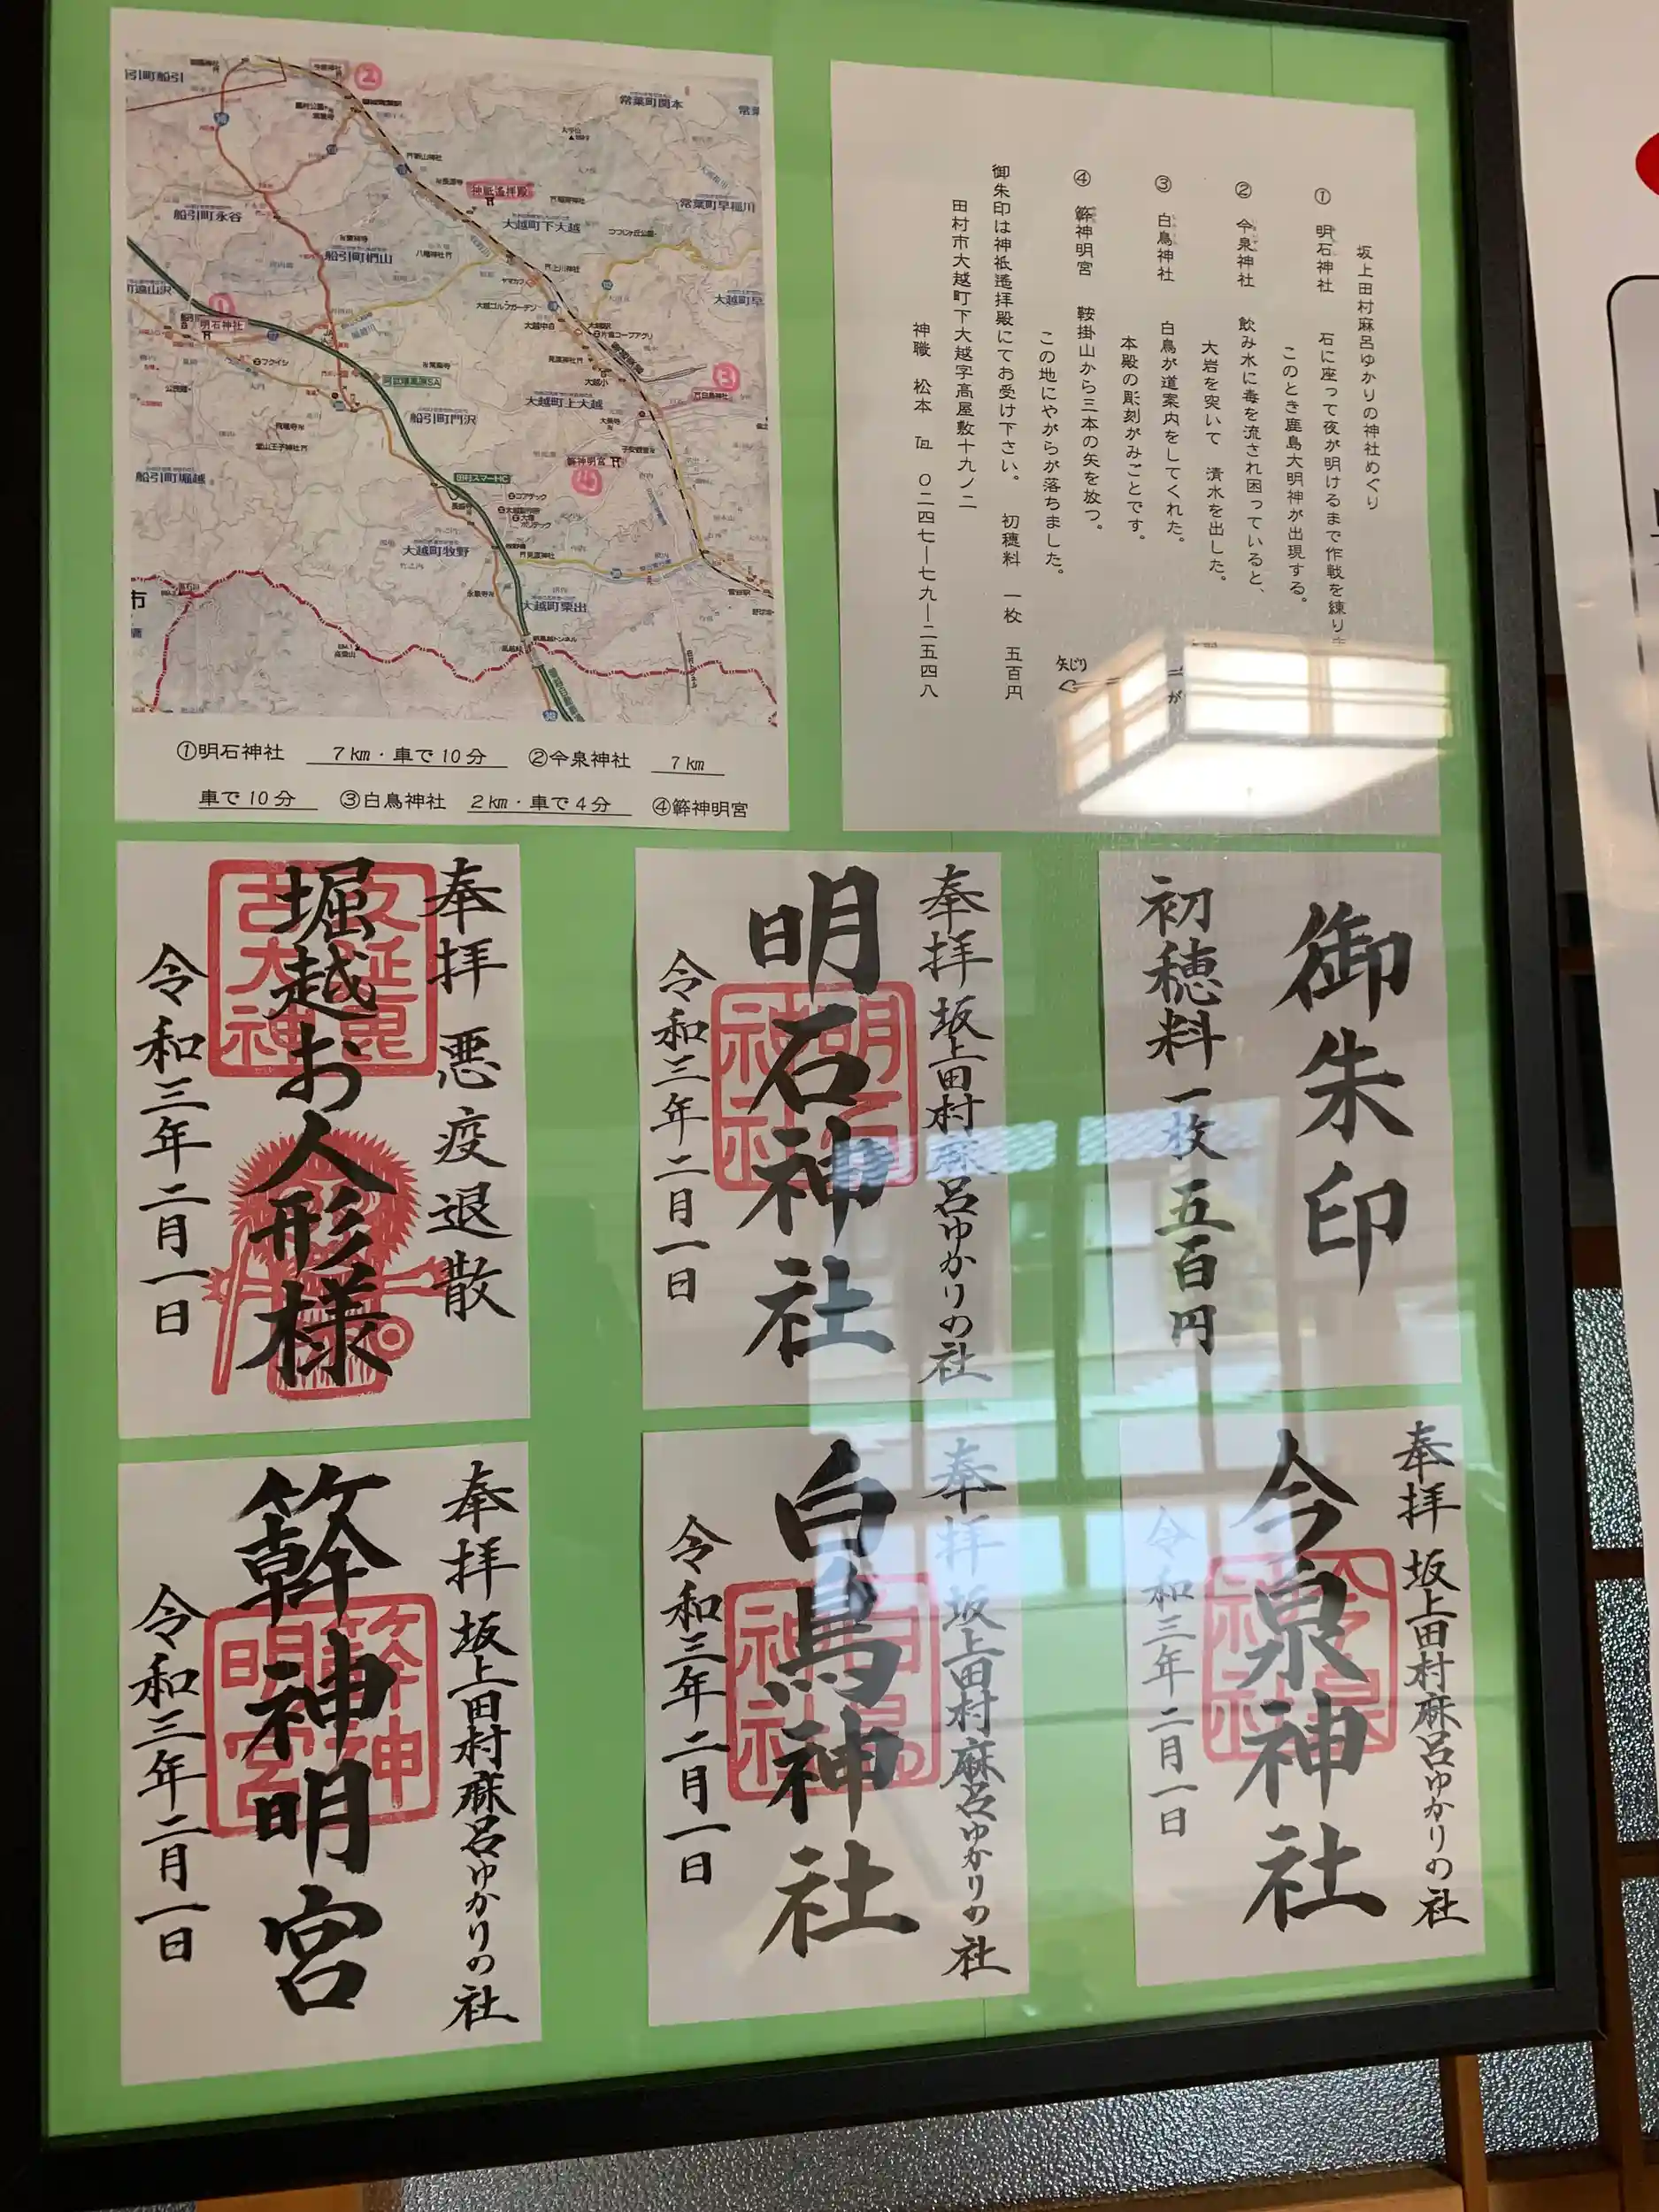 坂上田村麻呂ゆかりの神社めぐり
① 明石神社 石に座って夜が明けるまで作戦を練り
このとき鹿島大明神が出現する。
② 今泉神社 飲み水に毒を流され困っていると、
大岩を突いて 清水を出した。
③ 白鳥神社 白鳥が道案内をしてくれた。
本殿の彫刻がみごとです。
④ 簳神明宮 鞍掛山から三本の矢を放つ。
この地にやがらが落ちました。
矢じり
が
御朱印は神祇遙拝殿にてお受け下さい。 初穂料 一枚 五百円
田村市大越町下大越字高屋敷十九ノ二
神職 松本 ℡ 〇二四七―七九―二五四八
②
船引町船引
常葉町関本
常葉町早稲川
神祇遙拝殿
船引町永谷
大越町下大越
船引町椚山
①
明石神社
③
白鳥神社
阿武隈高原SA
船引町門沢
大越町上大越
簳神明宮
④
船引町堀越
田村スマートIC
大越町牧野
大越町栗出
①明石神社 7㎞・車で10分 ②今泉神社 7㎞
車で10分 ③白鳥神社 2㎞・車で4分 ④簳神明宮
御朱印
初穂料 一枚 五百円
奉拝 坂上田村麻呂ゆかりの社
明石神社
令和三年二月一日
奉拝 悪疫退散
堀越お人形様
令和三年二月一日
久延毘古大神
奉拝 坂上田村麻呂ゆかりの社
今泉神社
令和三年二月一日
奉拝 坂上田村麻呂ゆかりの社
白鳥神社
令和三年二月一日
奉拝 坂上田村麻呂ゆかりの社
簳神明宮
令和三年二月一日